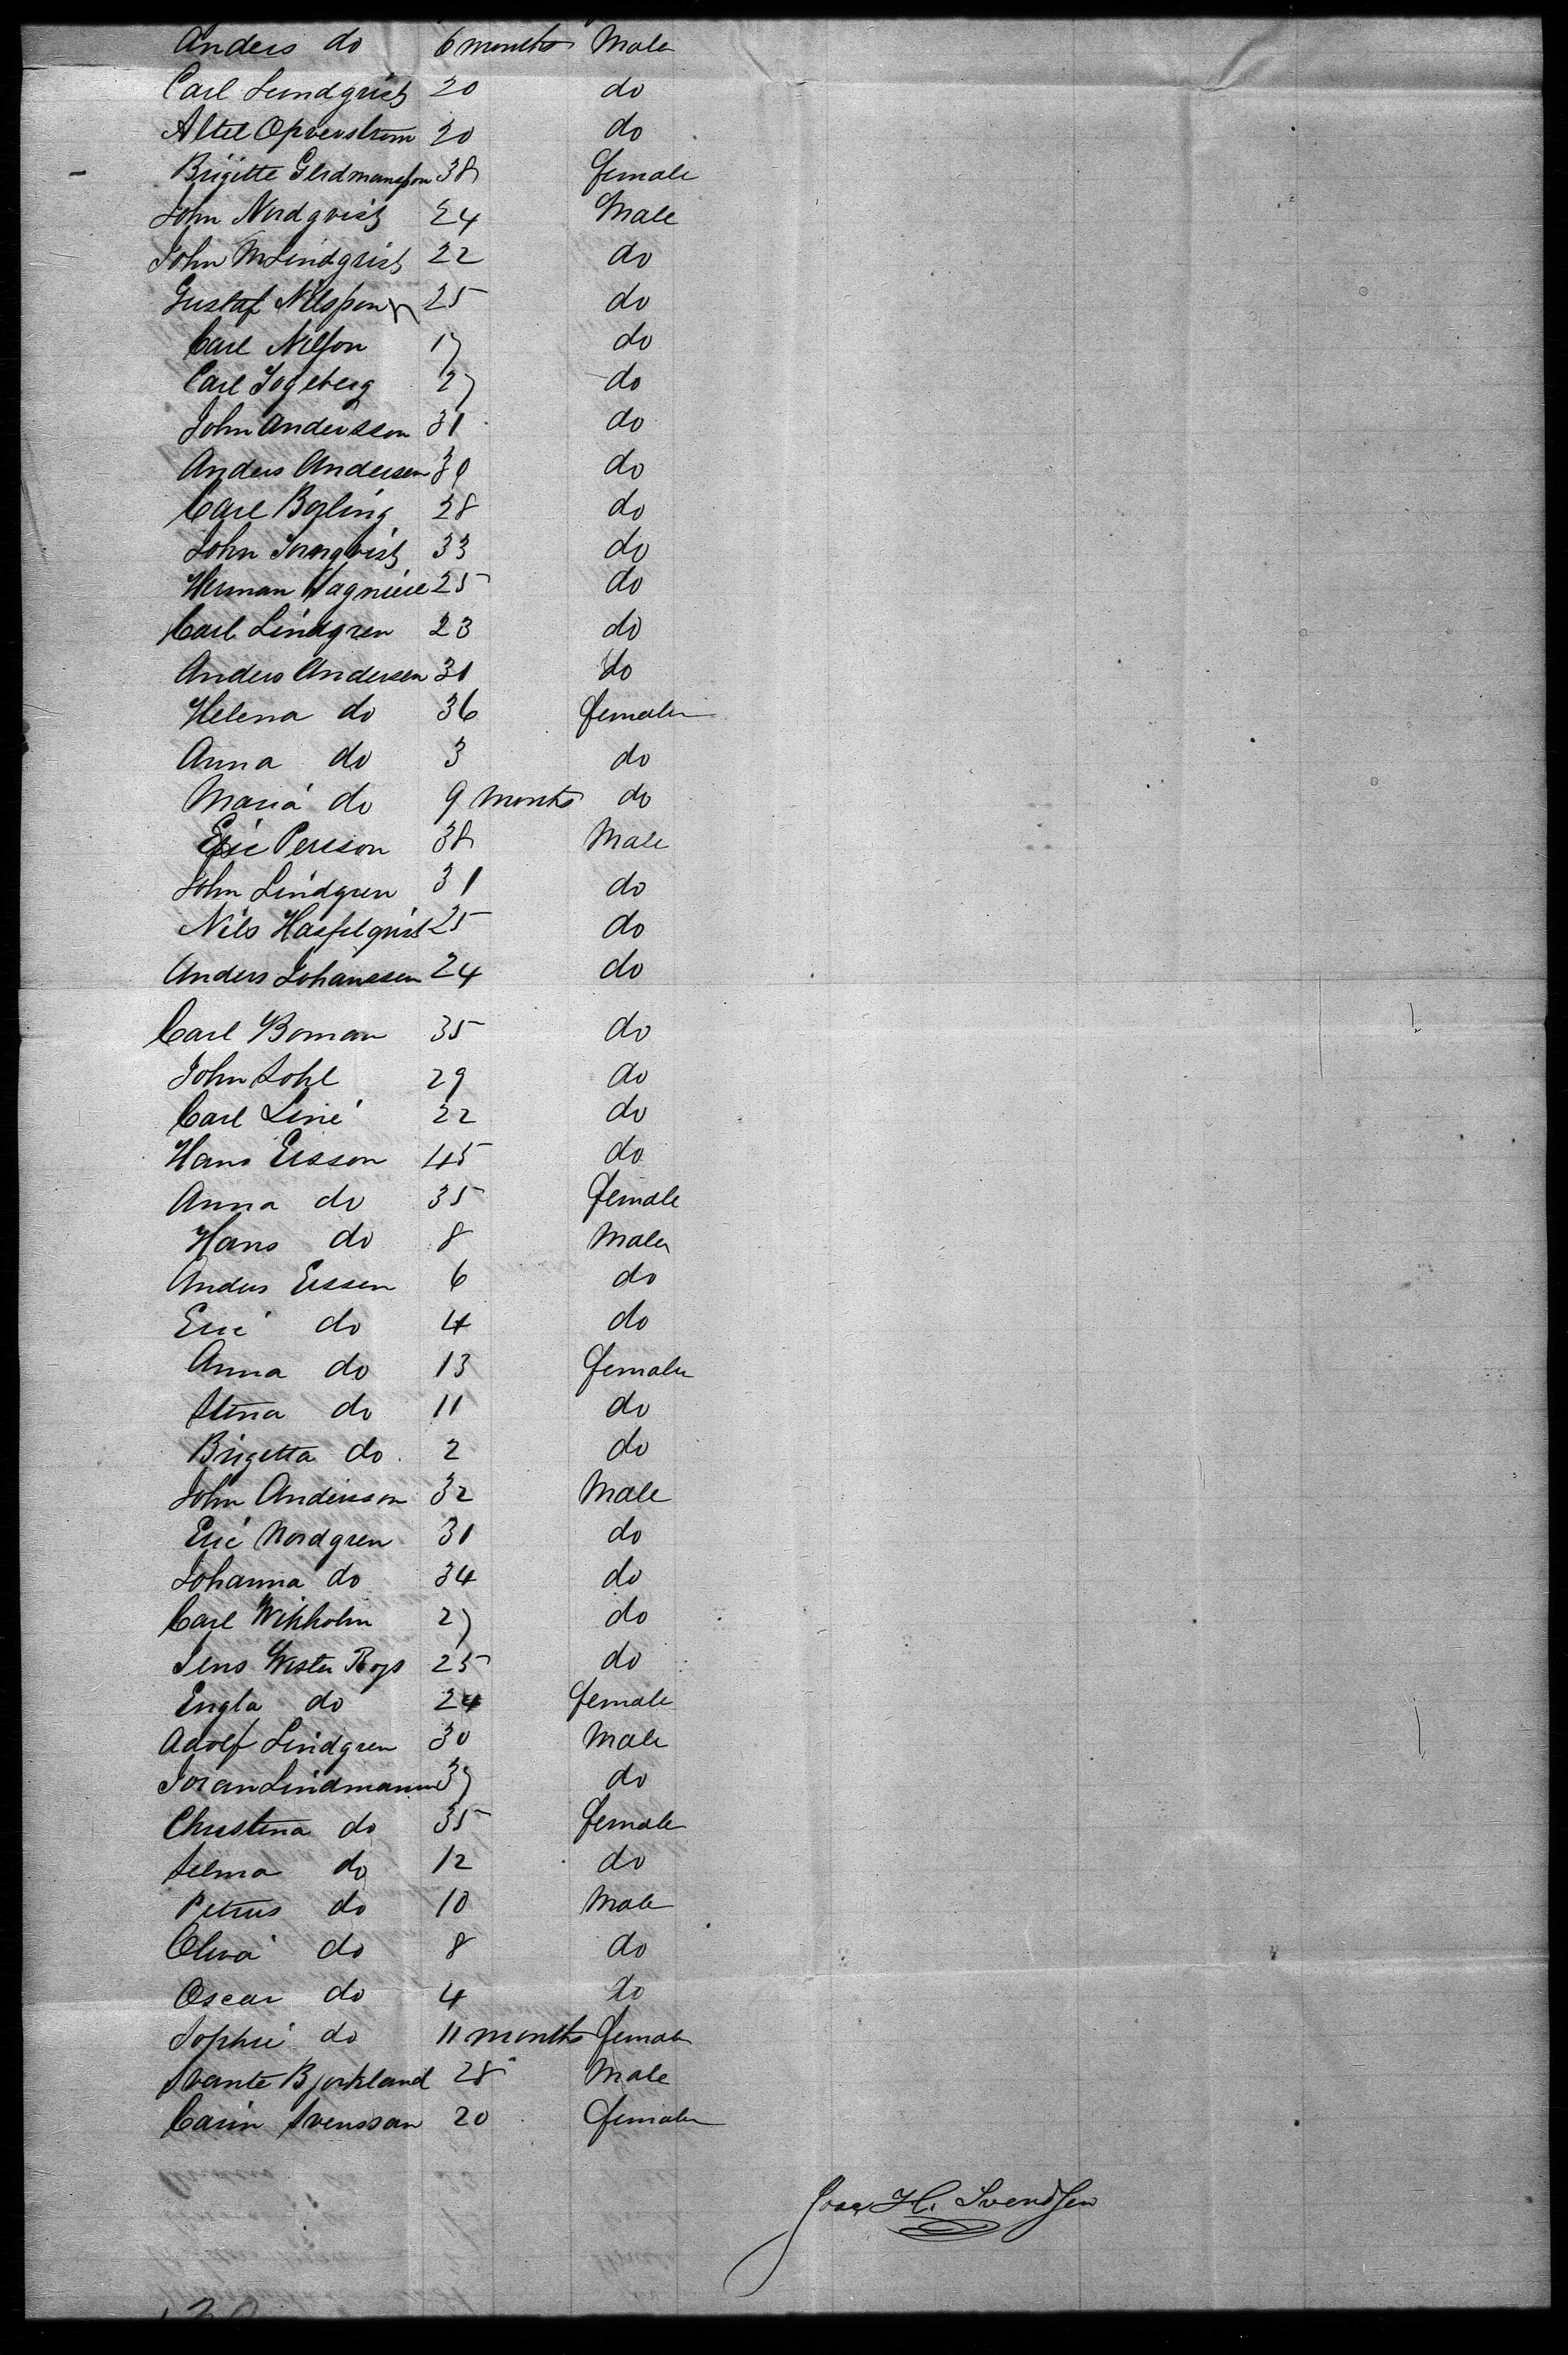 Anders do 6 months Male
Carl Lundqvist 20 do
Altel 20 do
Brigitte 38 female
John Nordqvist 24 Male
John M Lindqvist 22 do
Gustaf Nilsson 25 do
Carl Nilsson 17 do
Carl 27 do
John Andersson 31 do
Anders Andersen 30 do
Carl Boling 28 do
John 33 do
Herman 25 do
Carl Lindgren 23 do
Anders Andersen 31 do
Helena do 36 female
Anna do 3 do
Maria do 9 months do
Eric Persson 38 Male
John Lindgren 31 do
Nils Hasselqvist 25 do
Anders Johanssen 24 do
Carl Boman 35 do
John Sohl 29 do
Carl Liné 22 do
Hans Ersson 45 do
Anna do 35 female
Hans do 8 Male
Anders Erssen 6 do
Eric do 4 do
Anna do 13 female
Stina do 11 do
Brigetta do 2 do
John Andersson 32 Male
Eric Nordgren 31 do
Johanna do 34 do
Carl Wikholm 27 do
Jens Wester 25 do
Engla do 24 female
Adolf Lindgren 30 Male
Joran Lindmann 37 do
Christina do 35 female
Selma do 12 do
Petrus do 10 Male
Oliva do 8 do
Oscar do 4 do
Sophie do 11 months female
Svante Bjorkland 28 Male
Carin Svenssan 20 female
H. Svendsen